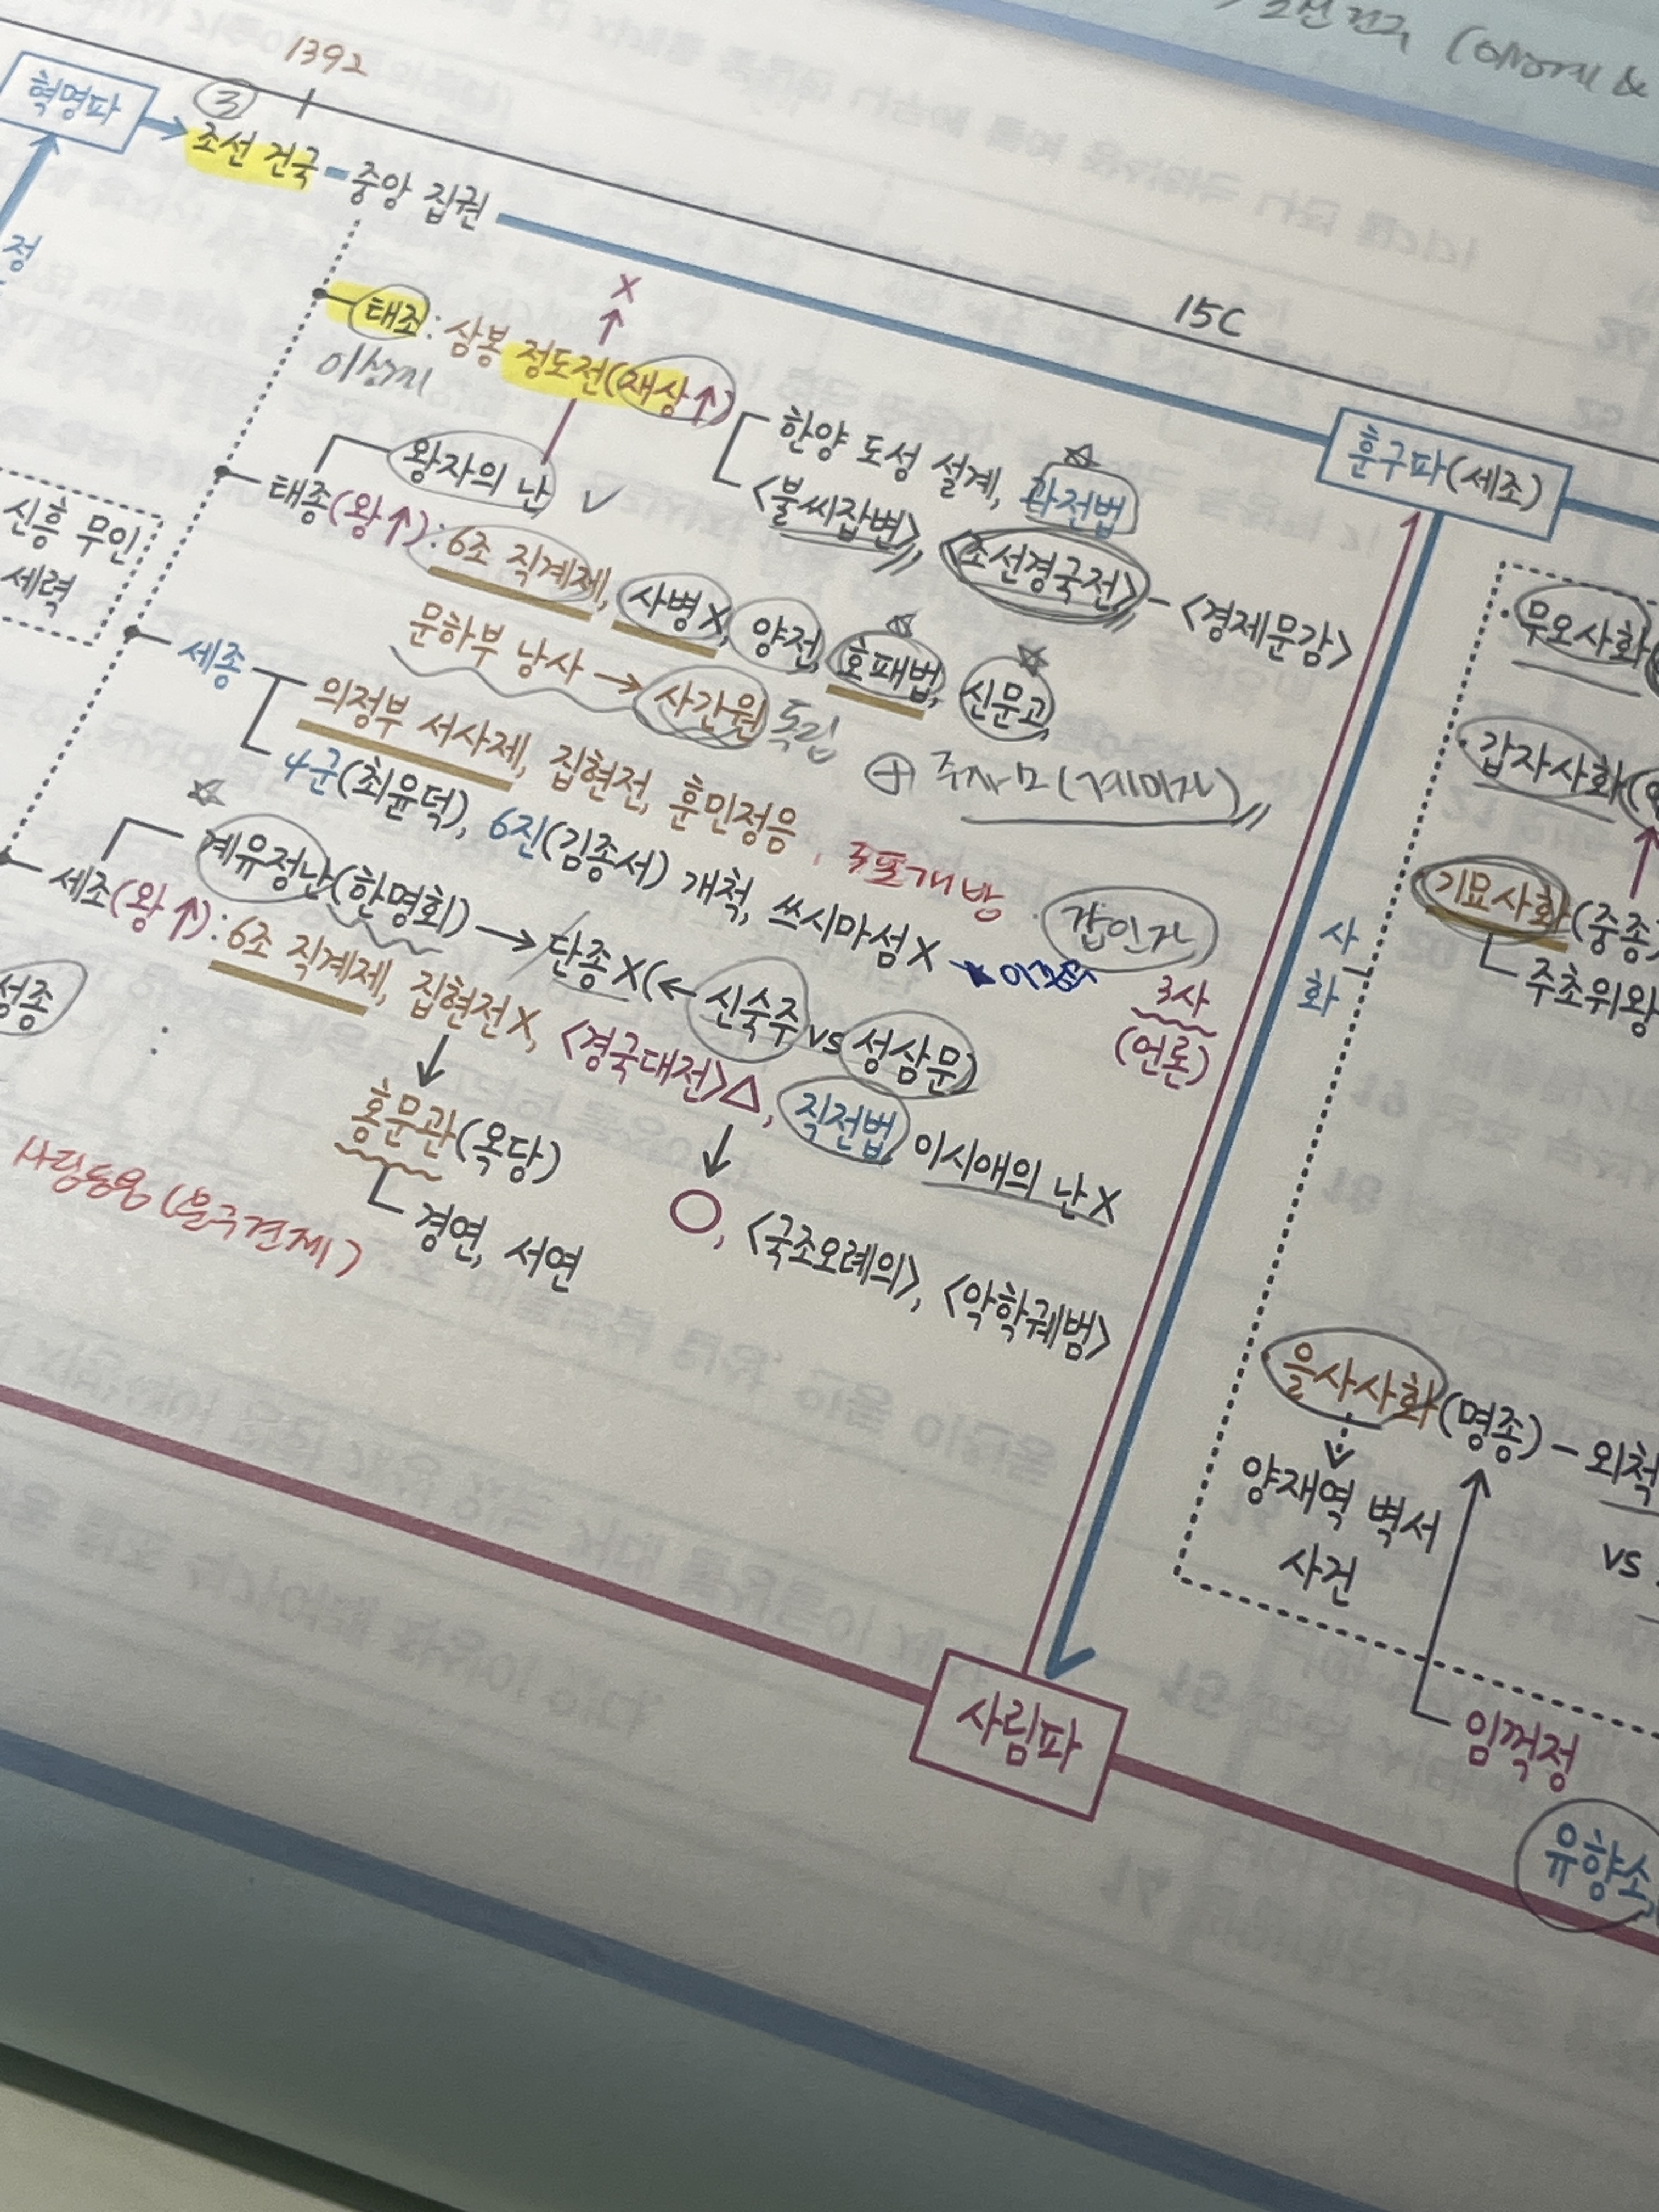 조선 건국 (이성계 &
1392
혁명파
③
조선 건국 - 중앙 집권
정
15C
X
↑
태조 : 삼봉 정도전(재상↑)
이성계
한양 도성 설계, 과전법
<불씨잡변>, <조선경국전> - <경제문감>
훈구파(세조)
왕자의 난 ✓
태종(왕↑) : 6조 직계제, 사병X, 양전, 호패법, 신문고,
문하부 낭사 → 사간원 독립
⊕ 주자소(계미자)
신흥 무인
세력
세종
의정부 서사제, 집현전, 훈민정음, 3포개방
4군(최윤덕), 6진(김종서) 개척, 쓰시마섬X
· 갑인자
계유정난(한명회) → 단종X(← 신숙주 vs 성삼문)
세조(왕↑) : 6조 직계제, 집현전X, <경국대전>△, 직전법, 이시애의 난X
3사
(언론)
성종 :
홍문관(옥당)
경연, 서연
○, <국조오례의>, <악학궤범>
사림등용 (훈구견제)
사
화
· 무오사화(
· 갑자사화(
· 기묘사화(중종)
주초위왕
을사사화(명종) - 외척
vs
양재역 벽서
사건
임꺽정
사림파
유향소,